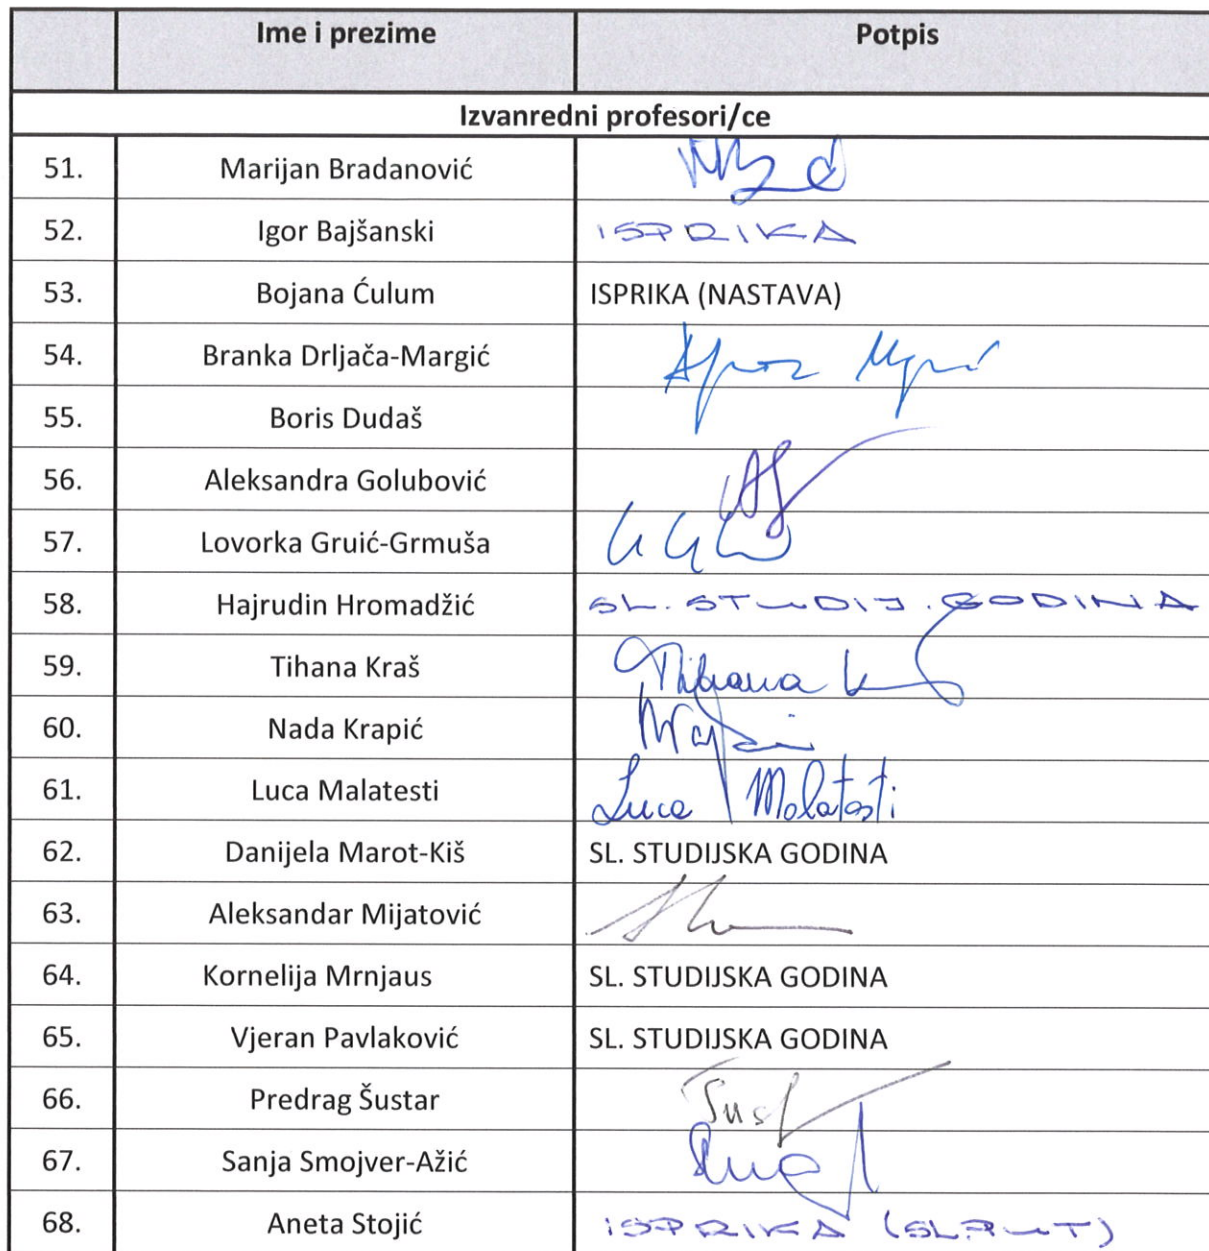 Ime i prezime Potpis
Izvanredni profesori/ce
51. Marijan Bradanović
52. Igor Bajšanski ISPRIKA
53. Bojana Ćulum ISPRIKA (NASTAVA)
54. Branka Drljača-Margić
55. Boris Dudaš
56. Aleksandra Golubović
57. Lovorka Gruić-Grmuša
58. Hajrudin Hromadžić SL. STUDIJ. GODINA
59. Tihana Kraš Tihana K
60. Nada Krapić
61. Luca Malatesti Luca Malatesti
62. Danijela Marot-Kiš SL. STUDIJSKA GODINA
63. Aleksandar Mijatović
64. Kornelija Mrnjaus SL. STUDIJSKA GODINA
65. Vjeran Pavlaković SL. STUDIJSKA GODINA
66. Predrag Šustar
67. Sanja Smojver-Ažić
68. Aneta Stojić ISPRIKA (SL.PUT)